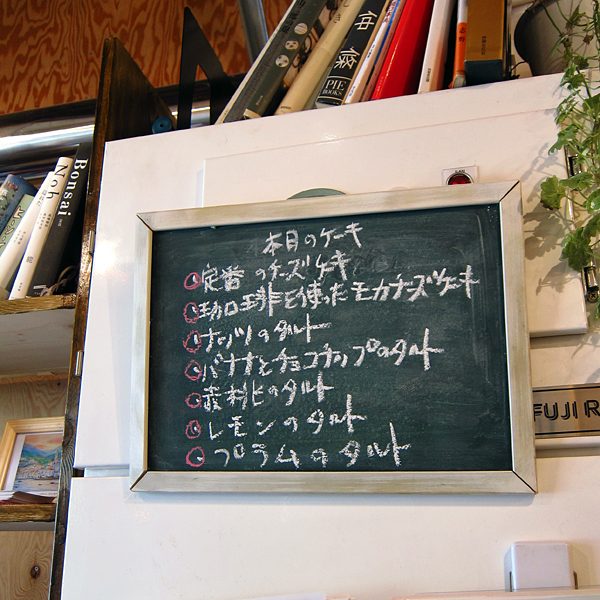 仲條
PIE
BOOKS
Bonsai
Noh
本日のケーキ
定番のチーズケーキ
珈琲を使ったモカチーズケーキ
ナッツのタルト
バナナとチョコチップのタルト
レモンのタルト
プラムのタルト
FUJI R